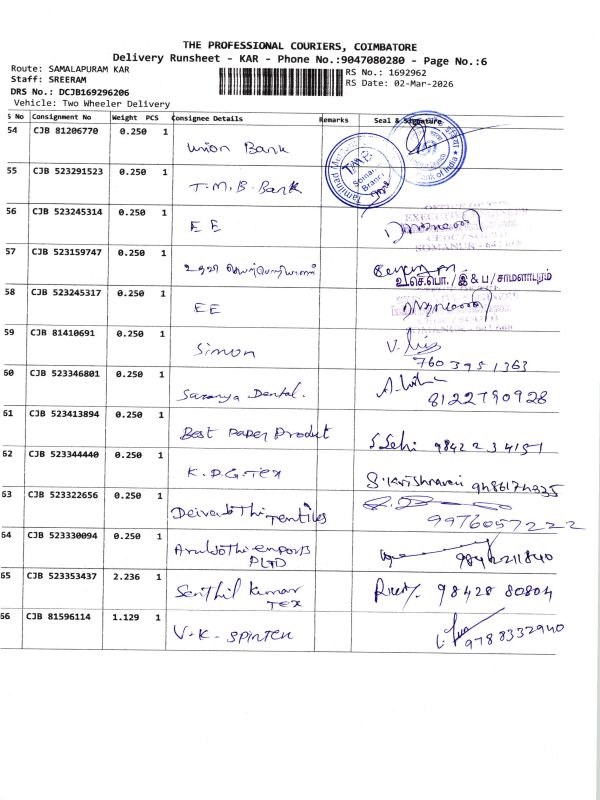 THE PROFESSIONAL COURIERS, COIMBATORE
Delivery Runsheet - KAR - Phone No.:9047080280 - Page No.:6
Route: SAMALAPURAM KAR
RS No.: 1692962
Staff: SREERAM
RS Date: 02-Mar-2026
DRS No.: DCJB169296206
Vehicle: Two Wheeler Delivery
S No Consignment No Weight PCS Consignee Details Remarks Seal & Signature
54 CJB 81206770 0.250 1 Union Bank
55 CJB 523291523 0.250 1 T.M.B. Bank
56 CJB 523245314 0.250 1 EE
57 CJB 523159747 0.250 1 உதவி செயற்பொறியாளர்
உ.செ.பொ./இ & ப/சாமளாபுரம்
58 CJB 523245317 0.250 1 EE
59 CJB 81410691 0.250 1 Simon
760 395 1363
60 CJB 523346801 0.250 1 Saranya Dental.
8122790928
61 CJB 523413894 0.250 1 Best Paper Product 98422 34151
62 CJB 523344440 0.250 1 K.P.G. Tex
63 CJB 523322656 0.250 1
9976057222
64 CJB 523330094 0.250 1 PLTD
65 CJB 523353437 2.236 1 Senthil Kumar TEX 98428 80804
66 CJB 81596114 1.129 1 V.K. SPINTEX
9788332940